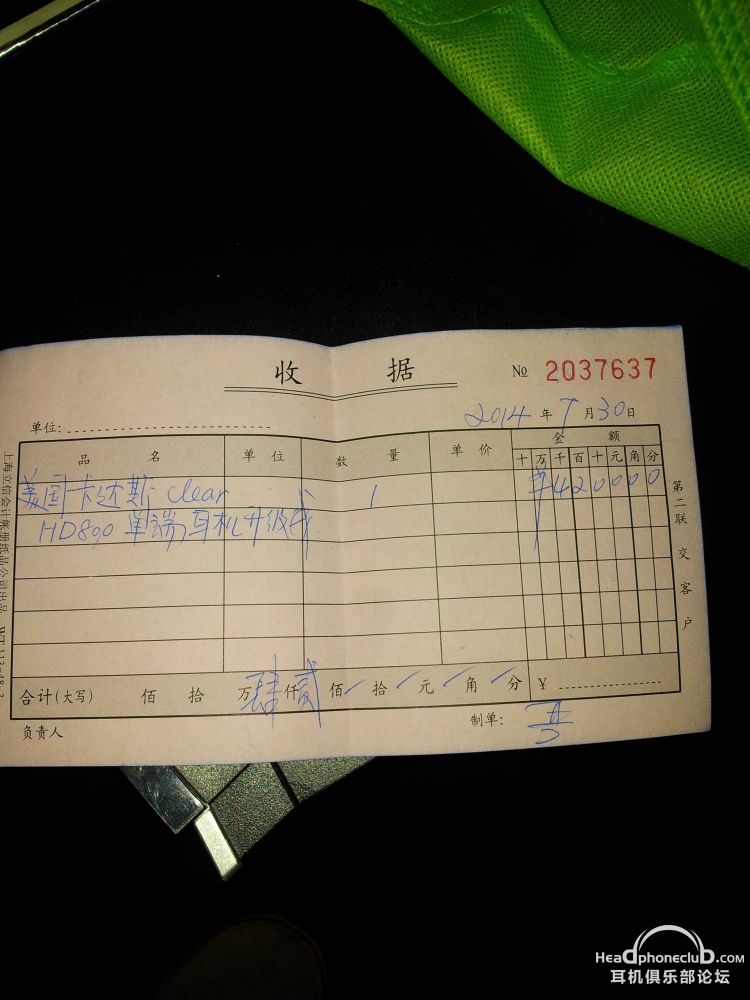 收 据
№ 2037637
2014 年 7 月 30 日
单位:
品 名 单 位 数 量 单 价 金 额
十 万 千 百 十 元 角 分
美国卡达斯 clear 1 ¥ 4 2 0 0 0 0
HD800 单端耳机升级线
合计(大写) 佰 拾 万 肆 仟 贰 佰 / 拾 / 元 / 角 / 分 ¥
负责人 制单:
第二联 交客户
上海立信会计帐册纸品公司出品
Headphoneclub.com
耳机俱乐部论坛